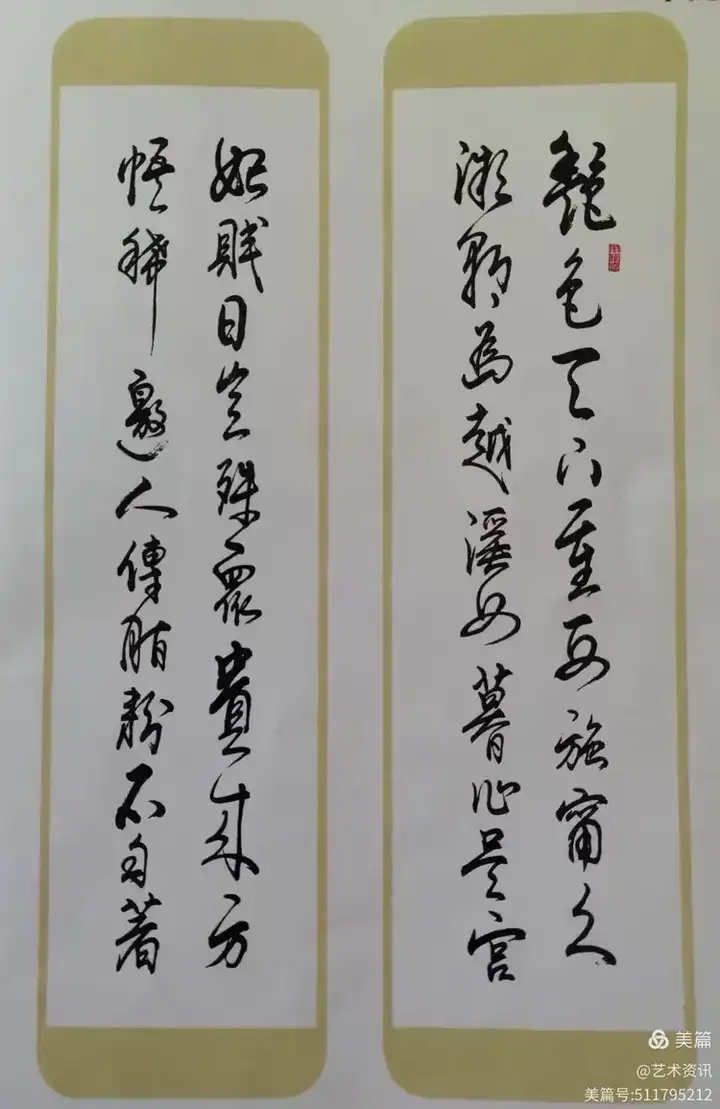 艷色天下重西施甯久
微朝為越溪女暮作吳宮
妃賤日豈殊眾貴來方
悟稀邀人傅脂粉不自著
美篇
@艺术资讯
美篇号:511795212